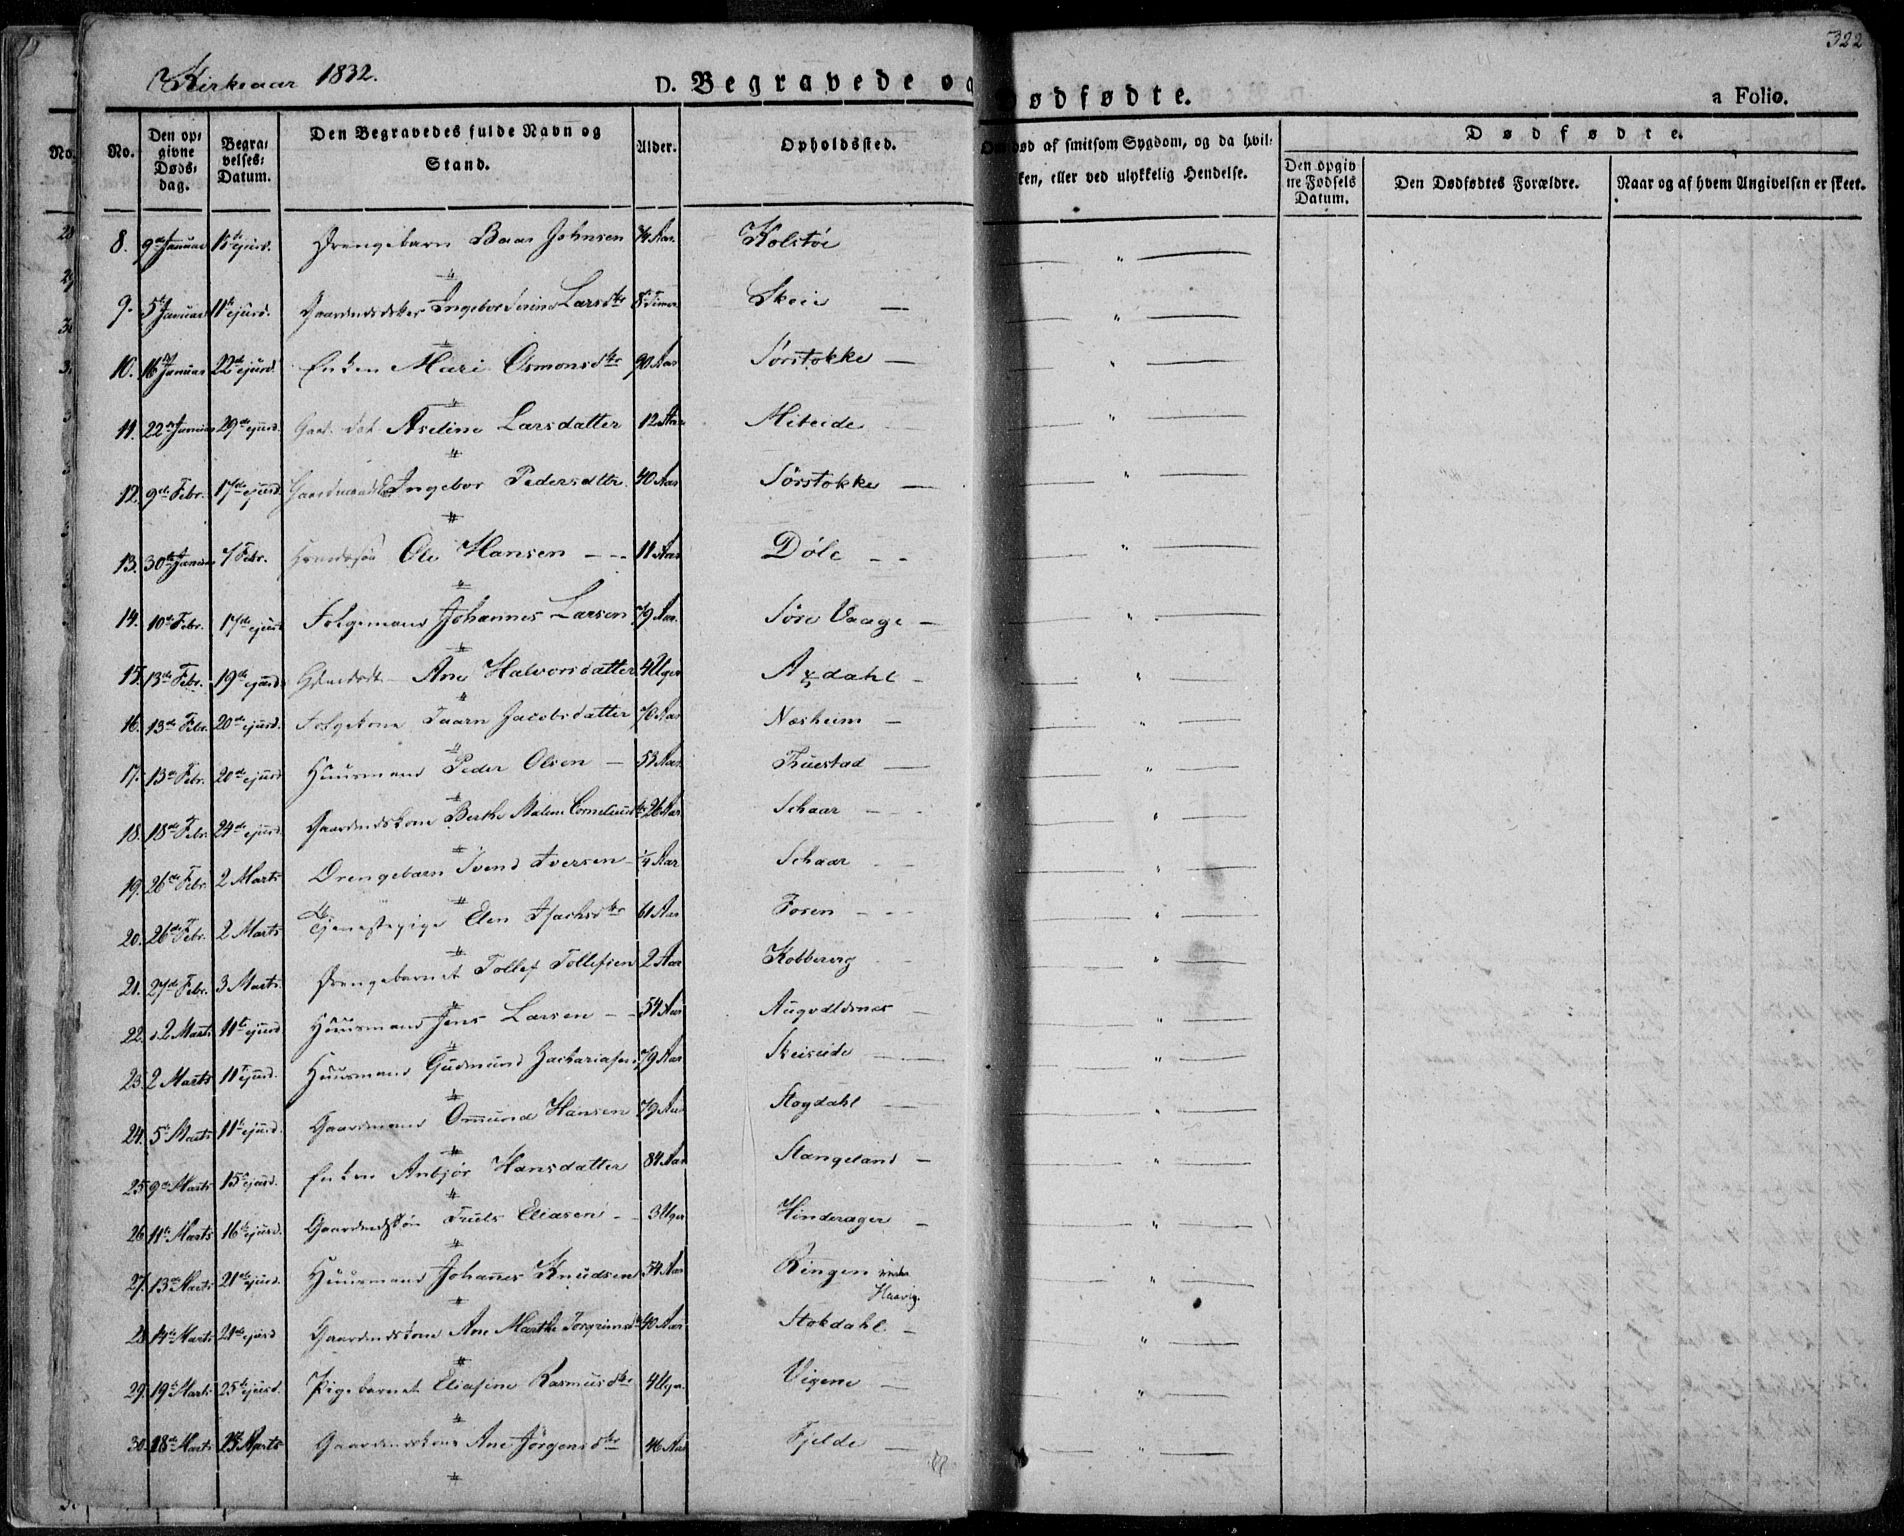 322
Kirkeaar 1832.
D. Begravede og Dødfødte. a Folio.
No. Den opgivne Døds-dag. Begravelses-Datum. Den Begravedes fulde Navn og Stand. Alder. Opholdssted. Om død af smitsom Sygdom, og da hvilken, eller ved ulykkelig Hendelse. Dødfødte.
Den opgivne Fødsels Datum. Den Dødfødtes Forældre. Naar og af hvem Angivelsen er skeet.
8. 9de Januar 15de ejusd. Drengebarn Baar Johnsen 3/4 Aar. Kolstøe "
9. 5te Januar 11te ejusd. Ingebor Serine Larsdtr 8 Timer Skeie "
10. 16de Januar 22de ejusd. Enken Mari Osmonsdtr 90 Aar Sørstokke "
11. 22de Januar 29de ejusd. Aseline Larsdatter 12 Hiteide "
12. 9de Febr. 17de ejusd. Ingebor Pedersdtr. 40 Aar Sørstokke "
13. 30te Januar 7 Febr. Ole Hansen 11 Aar Døle "
14. 10de Febr. 17de ejusd. Folgemand Johannes Larsen 79 Aar. Søre Vaage "
15. 13de Febr. 19de ejusd. Ane Halvorsdatter 4 Uger Axdahl "
16. 13de Febr. 20de ejusd. Folgekone Taarn Jacobsdatter 70 Aar Næsheim "
17. 13de Febr. 20de ejusd. Huusmand Peder Olsen 53 Aar. Truestad "
18. 18de Febr. 24de ejusd. Gaardmdskone Berthe Malene Corneliusdtr 26 Aar Schaar "
19. 26de Febr. 2 Marts Drengebarn Svend Iversen 1/4 Aar Schaar "
20. 26de Febr. 2 Marts Tjenestepige Elen Isachsdtr 61 Aar Fosen "
21. 27de Febr. 3 Marts. Drengebarnet Tollef Tollefsen 2 Aar Kobbervig "
22. d. 2 Marts 11te ejusd. Huusmand Jens Larsen 54 Aar Augvaldsnes "
23. 2 Marts 11te ejusd. Huusmand Gudmund Zachariasen 79 Aar Skeiseide "
24. 5te Marts 11te ejusd. Gaardmand Omund Hansen 79 Aar Stogdahl "
25. 9de Marts 15te ejusd. Enken Anbjør Hansdatter 84 Aar Stangeland "
26. 11te Marts 16te ejusd. Gaardmdssøn Truls Eliasen 3 Uger Hinderager "
27. 13de Marts 21de ejusd. Huusmand Johannes Knudsen 54 Aar Ringen under Haavig. "
28. 14de Marts 21de ejusd. Gaardmdskone Ane Marthe Torgrimsd. 40 Aar Stokdahl "
29. 19de Marts 25de ejusd. Pigebarnet Eliasine Rasmusdtr 4 Uger. Vigene "
30. 18de Marts 25 Marts Gaardmdskone Ane Jørgensdtr 46 Aar Fjelde "